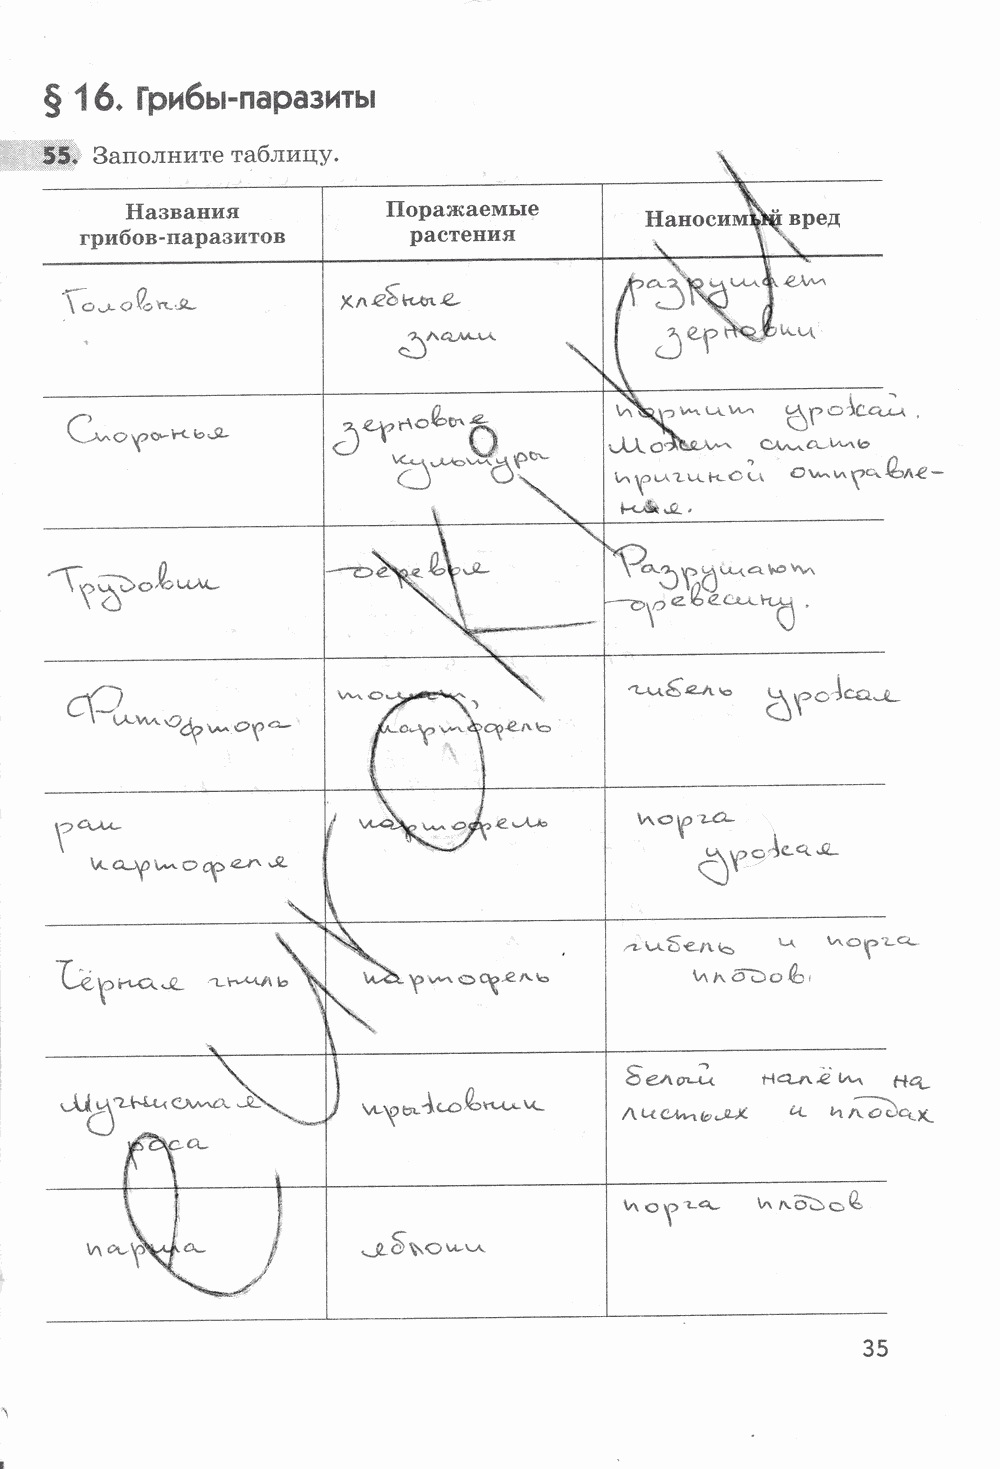 § 16. Грибы-паразиты
55. Заполните таблицу.
Названия
грибов-паразитов
Поражаемые
растения
Наносимый вред
Головня
хлебные
злаки
разрушает
зерновки
Спорынья
зерновые
культуры
портит урожай.
Может стать
причиной отправле-
ния.
Трудовик
деревья
Разрушают
древесину.
Фитофтора
томат,
картофель
гибель урожая
рак
картофеля
картофель
порча
урожая
Чёрная гниль
картофель
гибель и порча
плодов.
Мучнистая
роса
крыжовник
белый налёт на
листьях и плодах
парша
яблоки
порча плодов
35